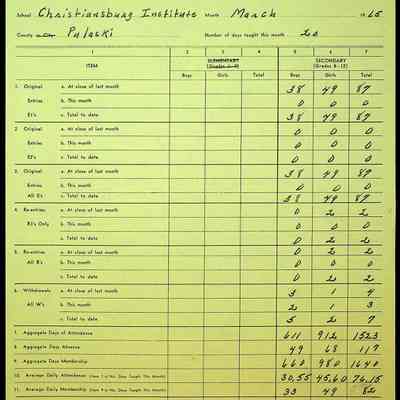 School Christiansburg Institute Month March 1965
County Pulaski Number of days taught this month 20
1 2 3 4 5 6 7
ITEM ELEMENTARY SECONDARY
(Grades 8-12)
Boys Girls Total Boys Girls Total
1. Original a. At close of last month 38 49 87
Entries b. This month 0 0 0
E1's c. Total to date 38 49 87
2. Original a. At close of last month 0 0 0
Entries b. This month 0 0 0
E2's c. Total to date 0 0 0
3. Original a. At close of last month 38 49 87
Entries b. This month 0 0 0
All E's c. Total to date 38 49 87
4. Re-entries a. At close of last month 0 2 2
R1's Only b. This month 0 0 0
c. Total to date 0 2 2
5. Re-entries a. At close of last month 0 2 2
All R's b. This month 0 0 0
c. Total to date 0 2 2
6. Withdrawals a. At close of last month 3 1 4
All W's b. This month 2 1 3
c. Total to date 5 2 7
7. Aggregate Days of Attendance 611 912 1523
8. Aggregate Days Absence 49 68 117
9. Aggregate Days Membership 660 980 1640
10. Average Daily Attendance (Item 7 ÷ No. Days Taught This Month) 30.55 45.60 76.15
11. Average Daily Membership (Item 9 ÷ No. Days Taught This Month) 33 49 82